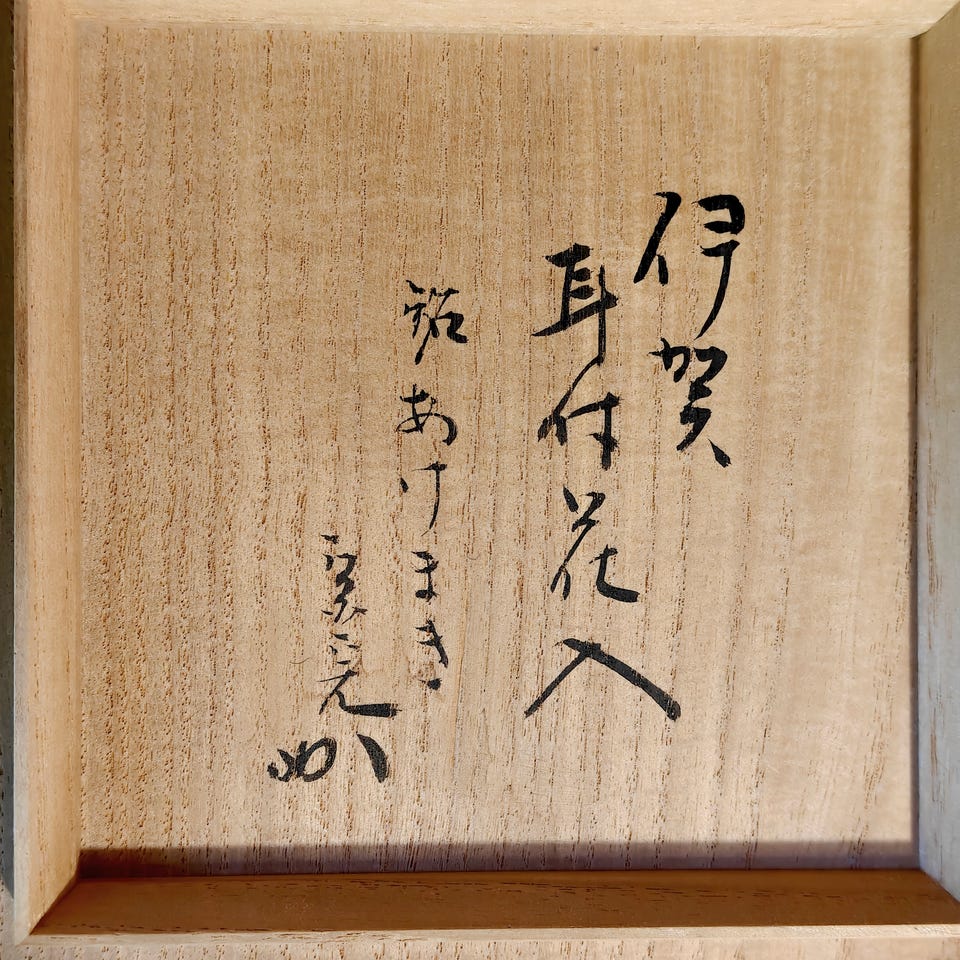 伊賀
耳付花入
銘あけまき